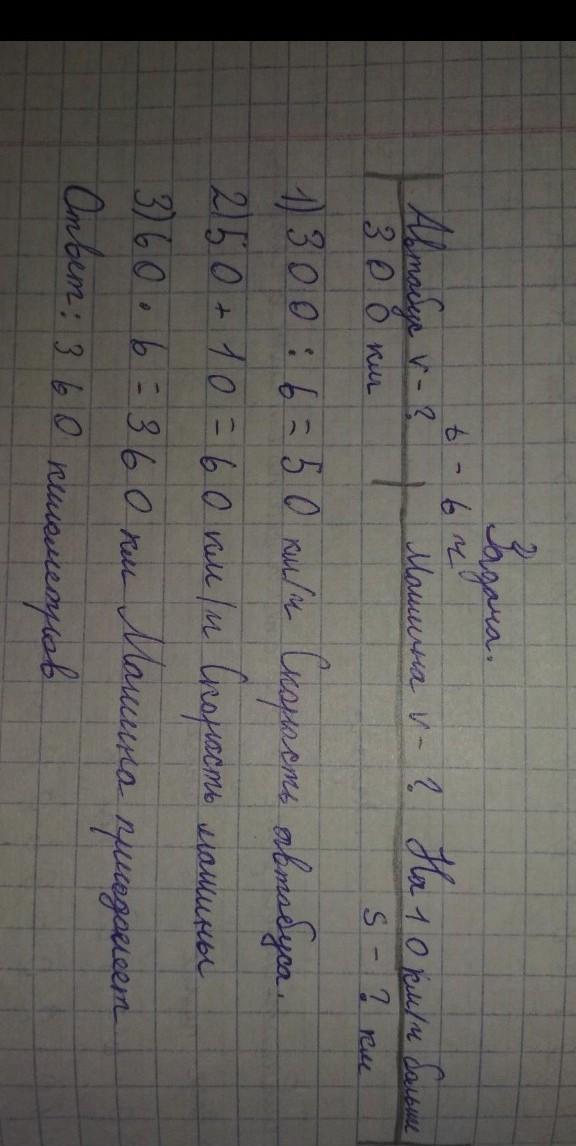 Задача.
t - 6 ч
Автобус v - ? Машина v - ? На 10 км/ч больше
300 км S - ? км
1) 300 : 6 = 50 км/ч Скорость автобуса.
2) 50 + 10 = 60 км/ч Скорость машины
3) 60 · 6 = 360 км Машина приедонеет
Ответ: 360 километров